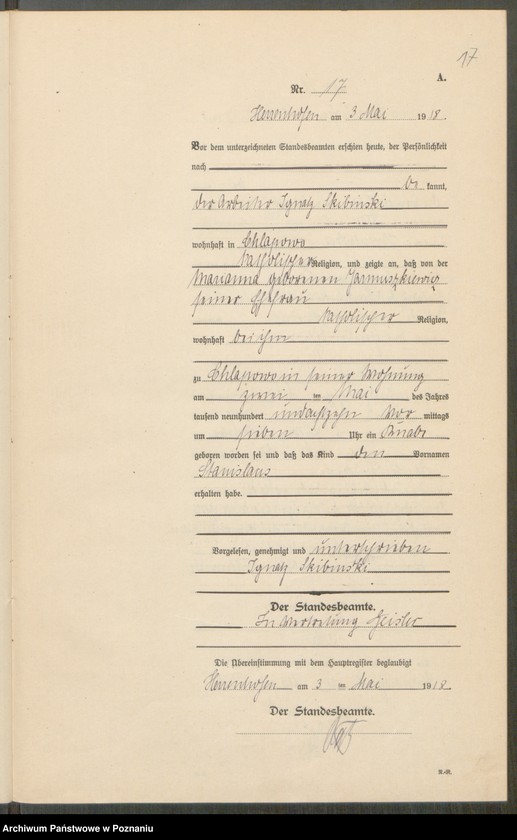 17
A.
Nr. 17
Herrenhofen am 3 Mai 1918.
Vor dem unterzeichneten Standesbeamten erschien heute, der Persönlichkeit
nach
be kannt,
der Arbeiter Ignatz Skibinski
wohnhaft in Chlapowo
katholischer Religion, und zeigte an, daß von der
Marianna geborenen Januszkiewicz
seiner Ehefrau
katholischer Religion,
wohnhaft bei ihm
zu Chlapowo in seiner Wohnung
am zwei ten Mai des Jahres
tausend neunhundert undachtzehn Vor mittags
um sieben Uhr ein Knabe
geboren worden sei und daß das Kind den Vornamen
Stanislaus
erhalten habe.
Vorgelesen, genehmigt und unterschrieben
Ignatz Skibinski
Der Standesbeamte.
In Vertretung Geisler
Die Übereinstimmung mit dem Hauptregister beglaubigt
Herrenhofen am 3 ten Mai 1918.
Der Standesbeamte.
K.-R.
Archiwum Państwowe w Poznaniu